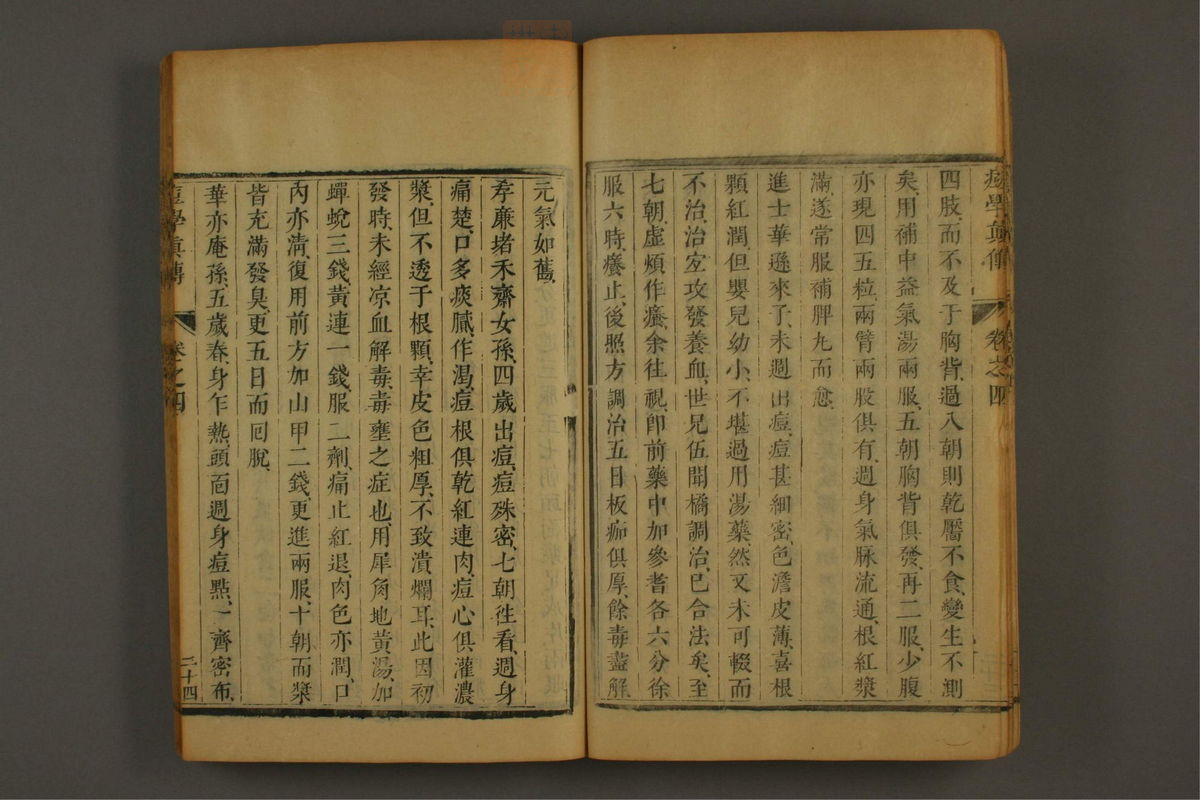 痘學眞傳 卷之四
四肢而不及于胸背過入朝則乾靨不食變生不測
矣用補中益氣湯兩服五朝胸背俱發再二服少腹
亦現四五粒兩臂兩股俱有週身氣脉流通根紅漿
滿遂常服補脾丸而愈
進士華遜來子未週出痘痘甚細密色澹皮薄喜根
顆紅潤但嬰兒幼小不堪過用湯藥然又未可輟而
不治治宜攻發養血世兄伍聞橋調治已合法矣至
七朝虛煩作癢余往視卽前藥中加參耆各六分徐
服六時癢止後照方調治五日板痂俱厚餘毒盡解
元氣如舊
孝廉堵禾齋女孫四歲出痘痘殊密七朝徃看週身
痛楚口多痰膩作渴痘根俱乾紅連肉痘心俱灌濃
漿但不透于根顆幸皮色粗厚不致潰爛耳此因初
發時未經凉血解毒毒壅之症也用犀角地黃湯加
蟬蛻三錢黃連一錢服二劑痛止紅退肉色亦潤口
內亦淸復用前方加山甲二錢更進兩服十朝而漿
皆充滿發臭更五日而囘脫
華亦庵孫五歲春身乍熱頭面週身痘點一齊密布
痘學眞傳 卷之四 三十四